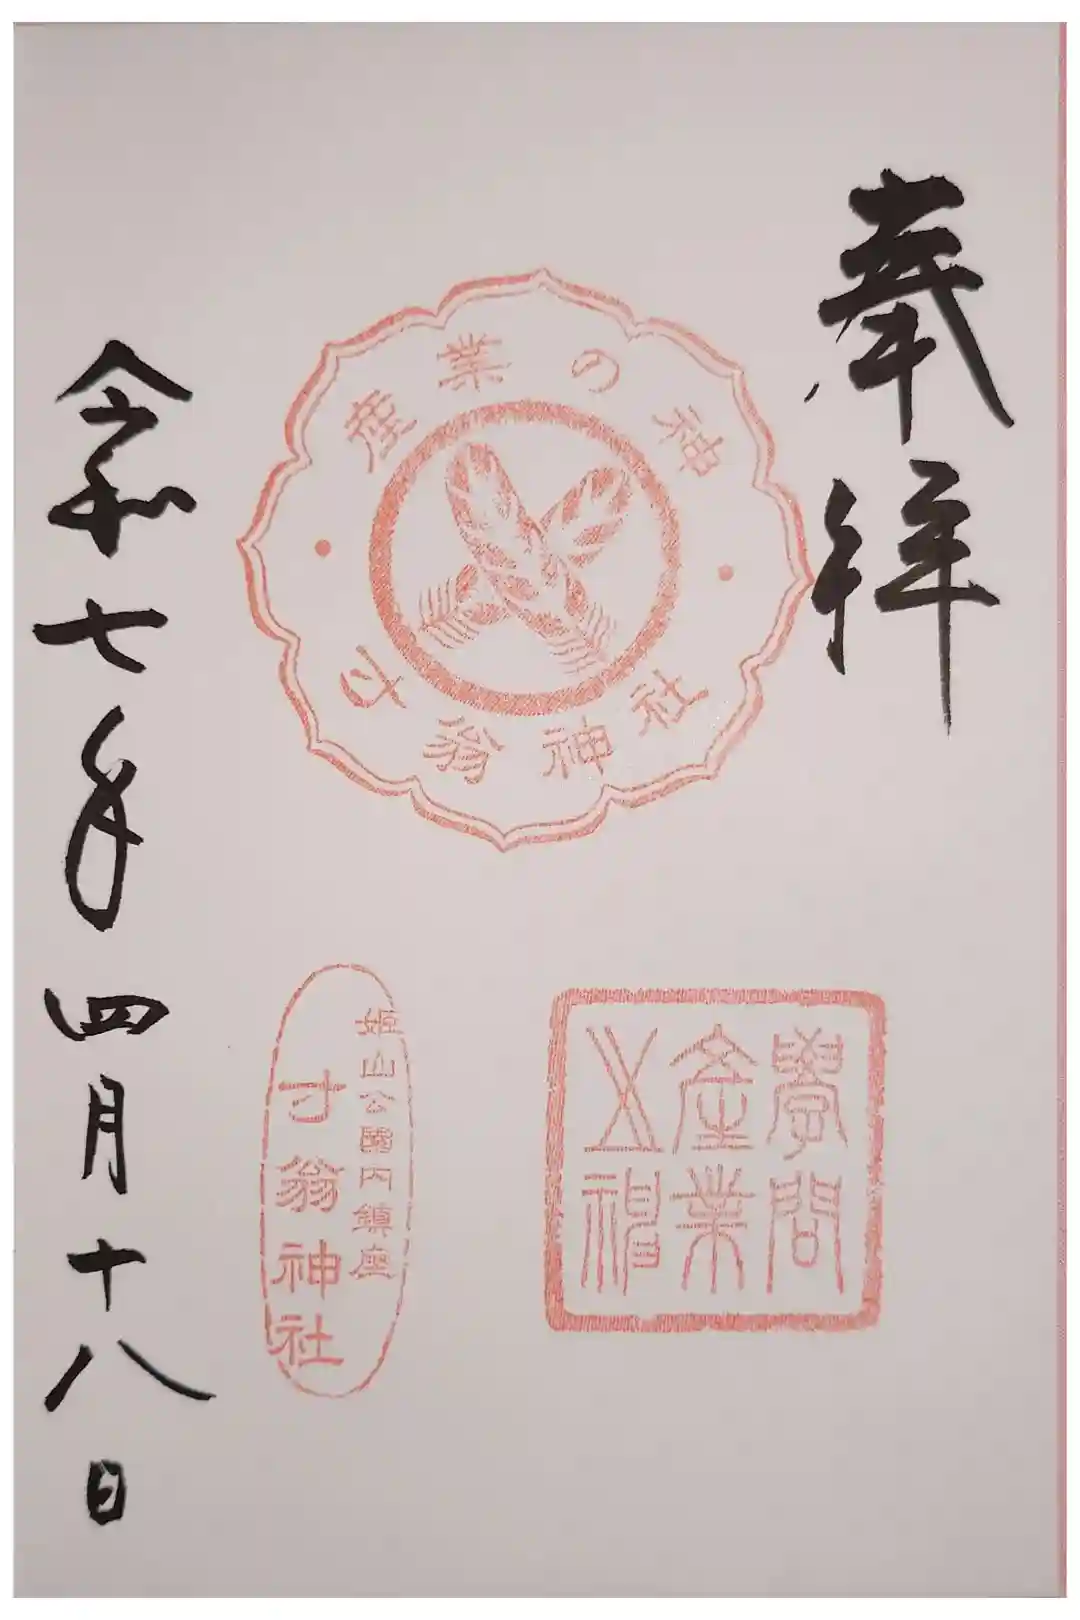 奉拝
産業の神
寸翁神社
學問
産業
五神
姫山公園内鎮座
寸翁神社
令和七年四月十八日